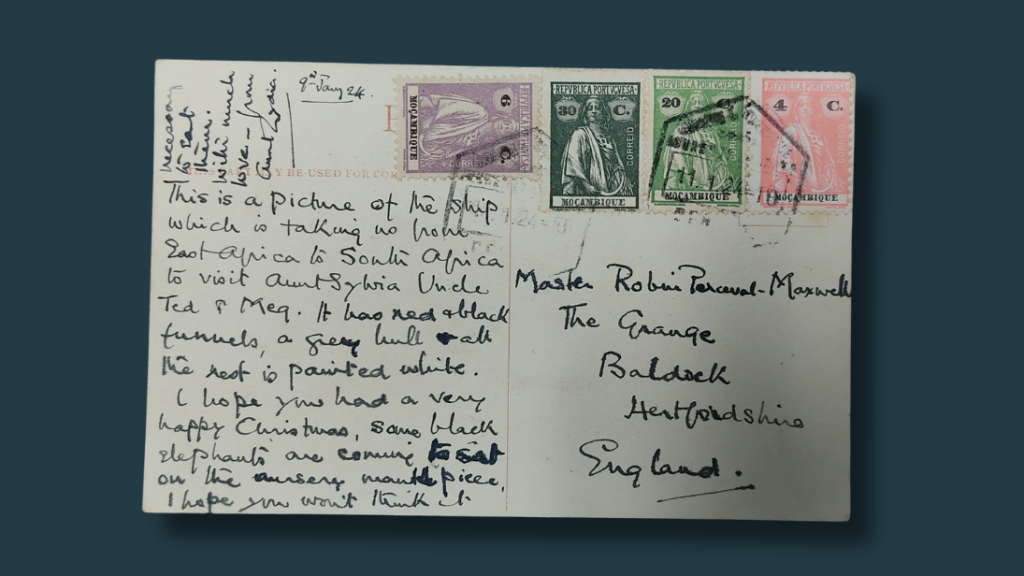 9th Jany 24.
This is a picture of the ship
which is taking us from
East Africa to South Africa
to visit Aunt Sylvia Uncle
Ted & Meg. It has red & black
funnels, a grey hull & all
the rest is painted white.
I hope you had a very
happy Christmas, some black
elephants are coming to sit
on the nursery mantlepiece,
I hope you won't think it
necessary
to eat
them.
with much
love - from
Aunt Lydia.
MAY BE USED FOR
6 C.
MOÇAMBIQUE
REPUBLICA PORTUGUESA
30 C.
CORREIO
MOÇAMBIQUE
REPUBLICA PORTUGUESA
20 C.
CORREIO
MOÇAMBIQUE
REPUBLICA PORTUGUESA
4 C.
MOÇAMBIQUE
11.1.24
Master Robin Perceval-Maxwell
The Grange
Baldock
Hertfordshire
England.